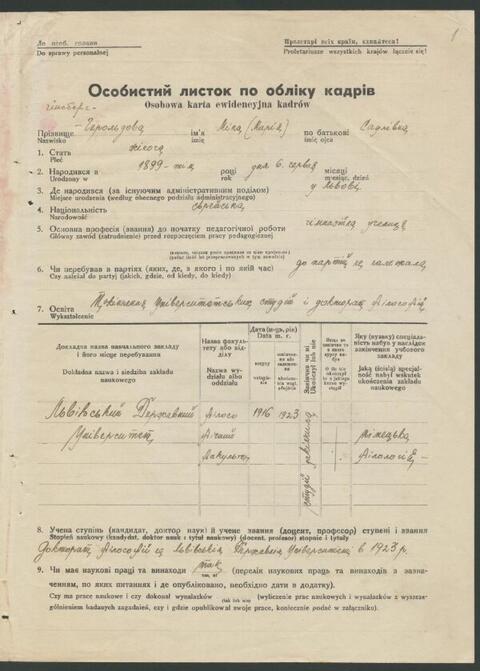 До особ. справи
Do sprawy personalnej
Пролетарі всіх країн, єднайтеся!
Proletariusze wszystkich krajów łączcie się!
1
Особистий листок по обліку кадрів
Osobowa karta ewidencyjna kadrów
Прізвище ім'я Міна (Марія) по батькові
Nazwisko imię imię ojca
1. Стать жіноча
Płeć
2. Народився в 1899-тім році дня 6. червня місяці
Urodzony w rok miesiąc, dzień
3. Де народився (за існуючим адміністративним поділом) у Львові
Miejsce urodzenia (według obecnego podziału administracyjnego)
4. Національність єврейська
Narodowość
5. Основна професія (звання) до початку педагогічної роботи
Główny zawód (zatrudnienie) przed rozpoczęciem pracy pedagogicznej
6. Чи перебував в партіях (яких, де, з якого і по якій час) до партії не належала
Czy należał do partyj (jakich, gdzie, od kiedy, do kiedy)
7. Освіта Університетських студій і докторат філософії
Wykształcenie
Докладна назва навчального закладу і його місце перебування
Dokładna nazwa i siedziba zakładu naukowego
Назва факультету або відділу
Nazwa wydziału albo oddziału
Дата (м-ць, рік)
Data m. r.
вступу
Закінчив чи ні
Ukończył lub nie
Яку (вузьку) спеціальність набув у наслідок закінчення учбового закладу
Jaką (ścisłą) specjalność nabył wskutek ukończenia zakładu naukowego
Львівський Державний Філосо 1916 1923
Університет фічний німецька
факультет філологія
8. Учена ступінь (кандидат, доктор наук) й учене звання (доцент, професор) ступені і звання
Stopień naukowy (kandydat, doktor nauk i tytuł naukowy) (docent, profesor) stopnie i tytuły
Докторат філософії Львівськ. Державн. Університеті в 1923 р.
9. Чи має наукові праці та винаходи так (перелік наукових праць та винаходів з зазначен-
(так, ні)
ням, по яких питаннях і де опубліковано, необхідно дати в додатку).
Czy ma prace naukowe i czy dokonał wynalazków (tak lub nie) (wyliczenie prac naukowych i wynalazków z wyszcze-
gólnieniem badanych zagadnień, czy i gdzie opublikował swoje prace, koniecznie podać w załączniku).